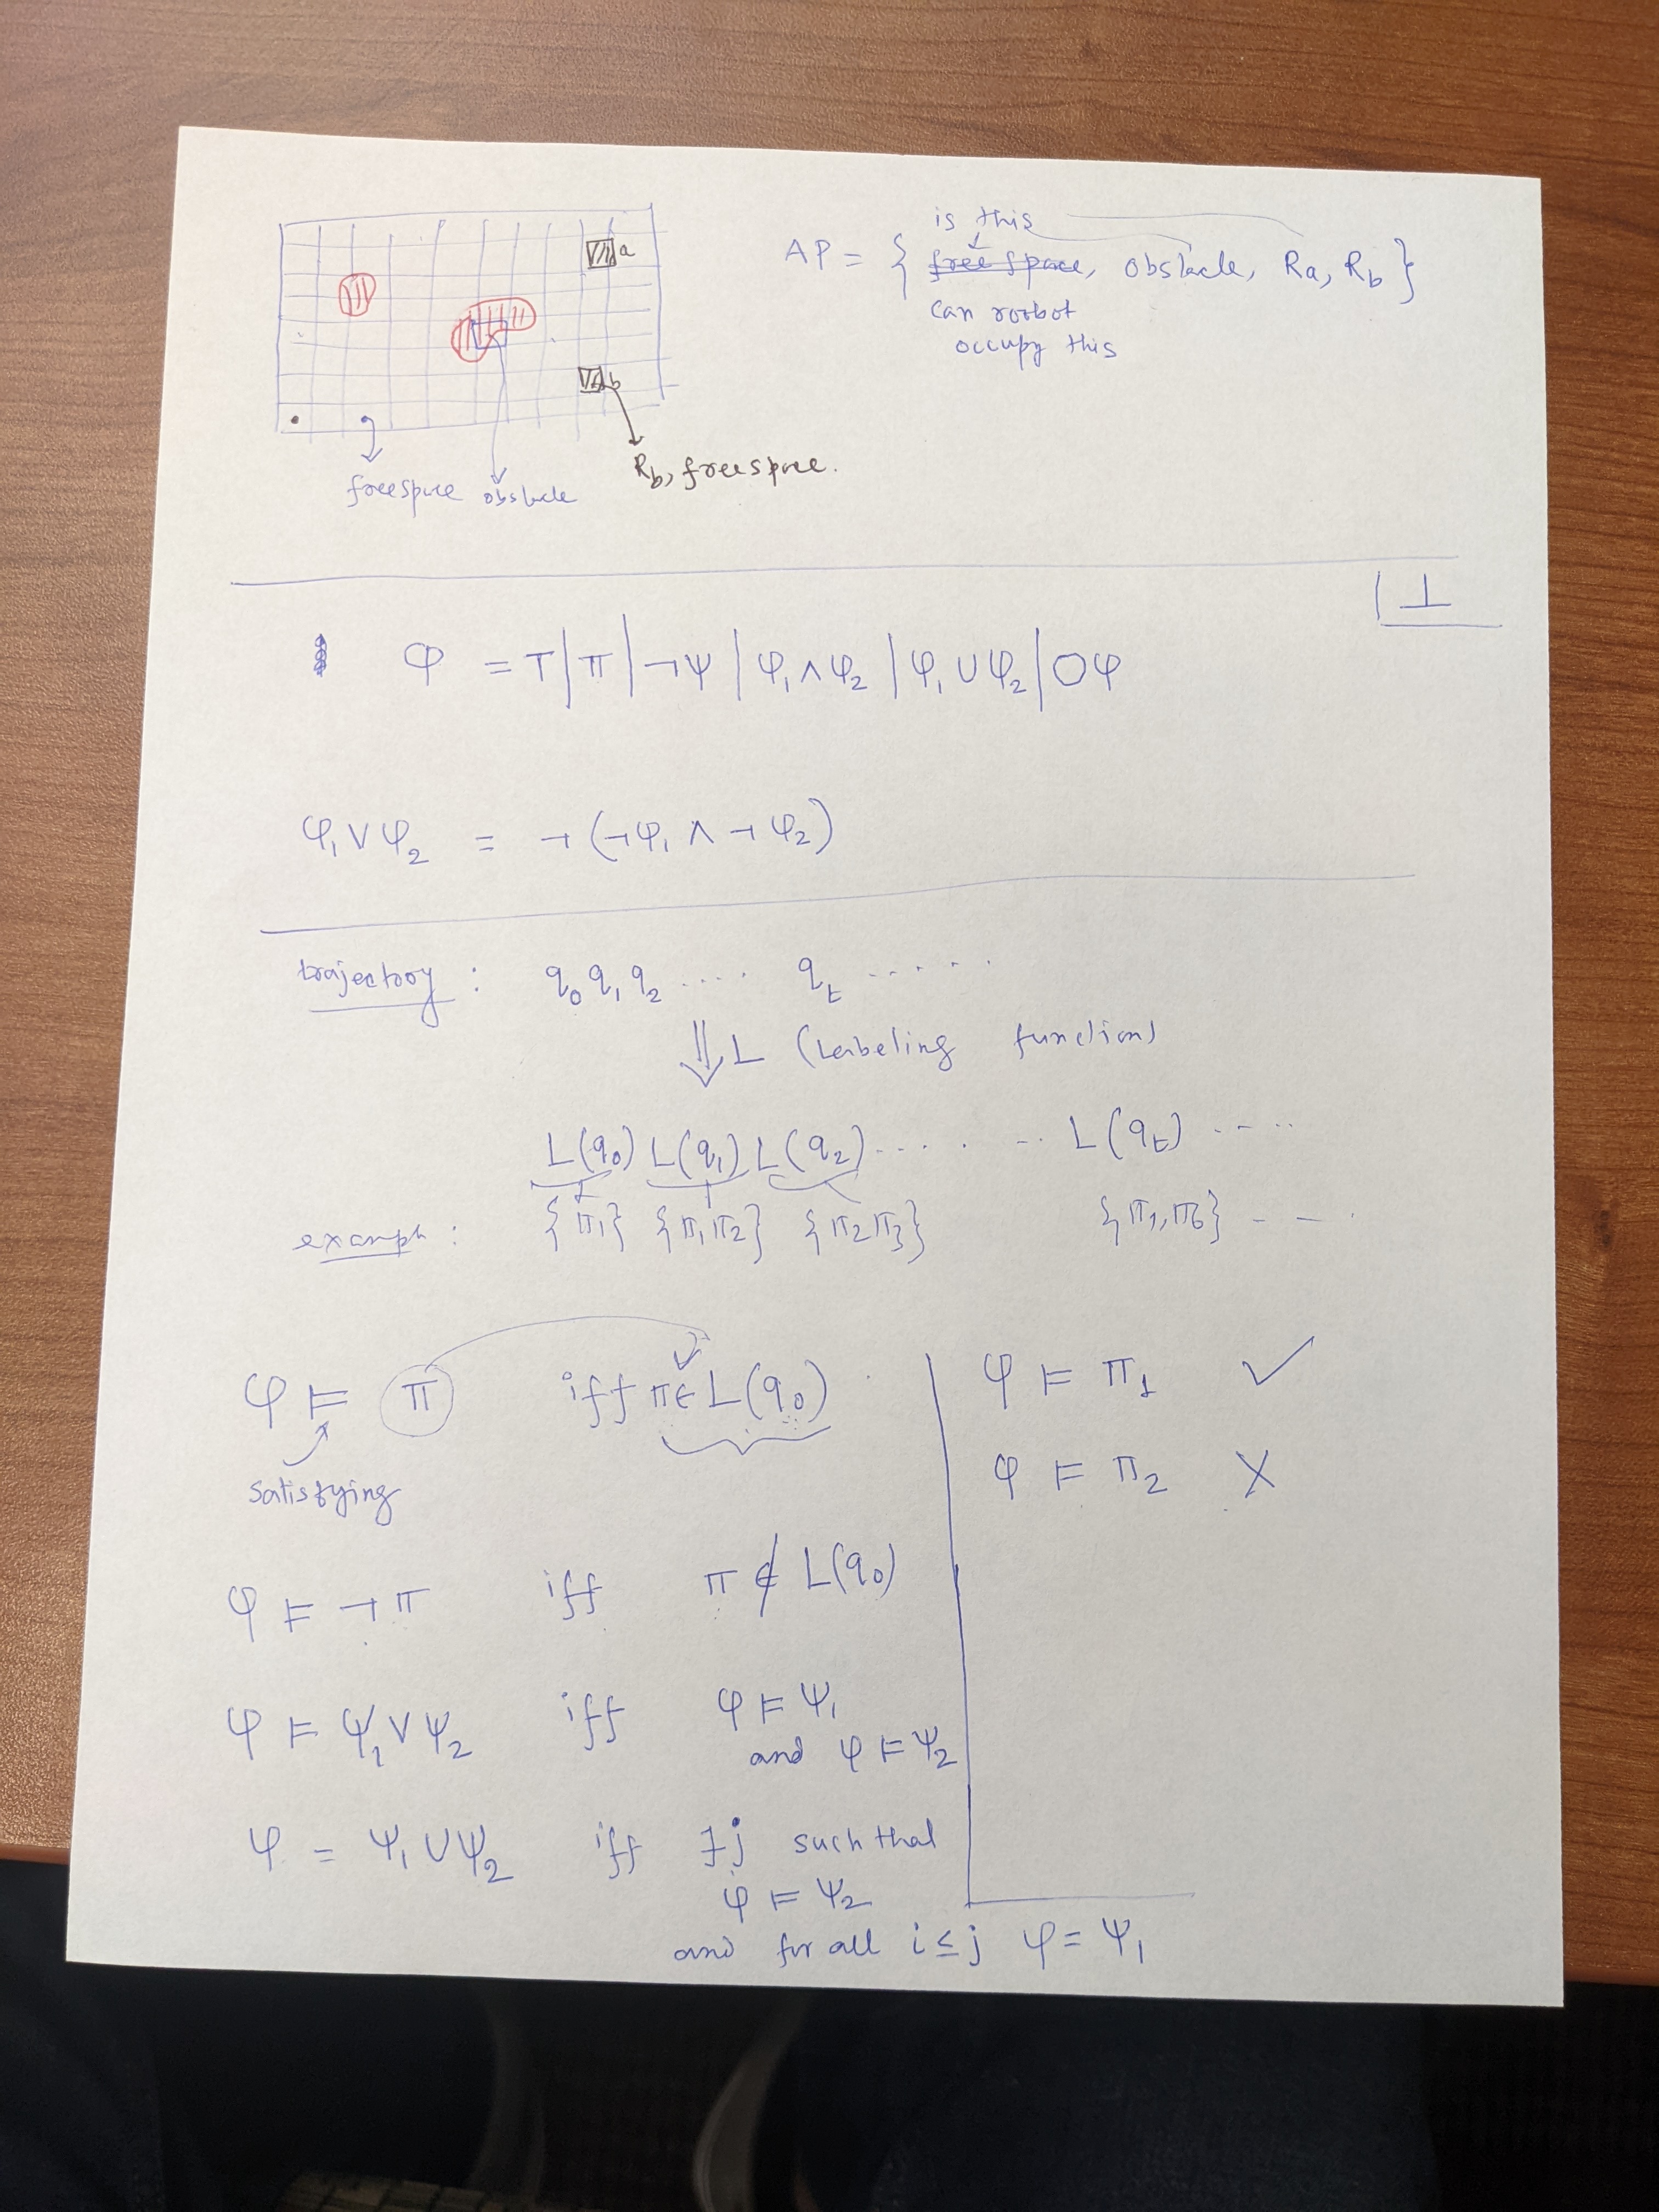 a
b
freespace obstacle
R_b, freespace.
is this
AP = { free space, obstacle, Ra, R_b }
can roobot
occupy this
⊥
φ = T | π | ¬ψ | φ₁ ∧ φ₂ | φ₁ ∪ φ₂ | ○φ
φ₁ ∨ φ₂ = ¬(¬φ₁ ∧ ¬φ₂)
trajectory : q₀ q₁ q₂ .... q_t ......
⇓ L (Labeling function)
L(q₀) L(q₁) L(q₂) ..... ... L(q_t) .....
example : {π₁} {π₁π₂} {π₂π₃} {π₁,π₆} - - .
φ ⊨ π iff π ∈ L(q₀)
satisfying
φ ⊨ π₁ ✓
φ ⊨ π₂ X
φ ⊨ ¬π iff π ∉ L(q₀)
φ ⊨ ψ₁ ∨ ψ₂ iff φ ⊨ ψ₁
and φ ⊨ ψ₂
φ = ψ₁ ∪ ψ₂ iff ∃j such that
φ ⊨ ψ₂
and for all i ≤ j φ = ψ₁